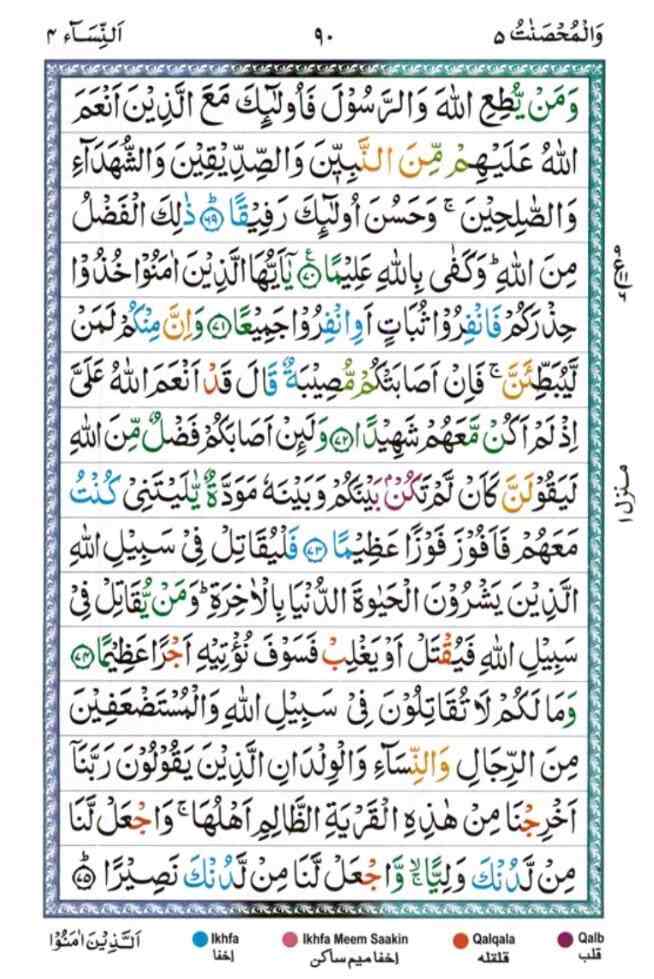 وَالْمُحْصَنٰتُ ۵
۹۰
اَلنِّسَآء ۴
وَمَنْ يُّطِعِ اللّٰهَ وَالرَّسُوْلَ فَاُولٰٓئِكَ مَعَ الَّذِيْنَ اَنْعَمَ
اللّٰهُ عَلَيْهِمْ مِّنَ النَّبِيّٖنَ وَالصِّدِّيْقِيْنَ وَالشُّهَدَآءِ
وَالصّٰلِحِيْنَ ۚ وَحَسُنَ اُولٰٓئِكَ رَفِيْقًا ؕ﴿۶۹﴾ ذٰلِكَ الْفَضْلُ
مِنَ اللّٰهِ ؕ وَكَفٰى بِاللّٰهِ عَلِيْمًا ﴿۷۰﴾ يٰۤاَيُّهَا الَّذِيْنَ اٰمَنُوْا خُذُوْا
حِذْرَكُمْ فَانْفِرُوْا ثُبَاتٍ اَوِانْفِرُوْا جَمِيْعًا ﴿۷۱﴾ وَاِنَّ مِنْكُمْ لَمَنْ
لَّيُبَطِّئَنَّ ۚ فَاِنْ اَصَابَتْكُمْ مُّصِيْبَةٌ قَالَ قَدْ اَنْعَمَ اللّٰهُ عَلَيَّ
اِذْ لَمْ اَكُنْ مَّعَهُمْ شَهِيْدًا ﴿۷۲﴾ وَلَئِنْ اَصَابَكُمْ فَضْلٌ مِّنَ اللّٰهِ
لَيَقُوْلَنَّ كَاَنْ لَّمْ تَكُنْۢ بَيْنَكُمْ وَبَيْنَهٗ مَوَدَّةٌ يّٰلَيْتَنِيْ كُنْتُ
مَعَهُمْ فَاَفُوْزَ فَوْزًا عَظِيْمًا ﴿۷۳﴾ فَلْيُقَاتِلْ فِيْ سَبِيْلِ اللّٰهِ
الَّذِيْنَ يَشْرُوْنَ الْحَيٰوةَ الدُّنْيَا بِالْاٰخِرَةِ ؕ وَمَنْ يُّقَاتِلْ فِيْ
سَبِيْلِ اللّٰهِ فَيُقْتَلْ اَوْ يَغْلِبْ فَسَوْفَ نُؤْتِيْهِ اَجْرًا عَظِيْمًا ﴿۷۴﴾
وَمَا لَكُمْ لَا تُقَاتِلُوْنَ فِيْ سَبِيْلِ اللّٰهِ وَالْمُسْتَضْعَفِيْنَ
مِنَ الرِّجَالِ وَالنِّسَآءِ وَالْوِلْدَانِ الَّذِيْنَ يَقُوْلُوْنَ رَبَّنَاۤ
اَخْرِجْنَا مِنْ هٰذِهِ الْقَرْيَةِ الظَّالِمِ اَهْلُهَا ۚ وَاجْعَلْ لَّنَا
مِنْ لَّدُنْكَ وَلِيًّا ۙۚ وَّاجْعَلْ لَّنَا مِنْ لَّدُنْكَ نَصِيْرًا ؕ﴿۷۵﴾
منزل ۱
اَلَّذِيْنَ اٰمَنُوْا
Ikhfa
Ikhfa Meem Saakin
Qalqala
Qalb
اِخفا
اِخفا میم ساکن
قلقله
قلب